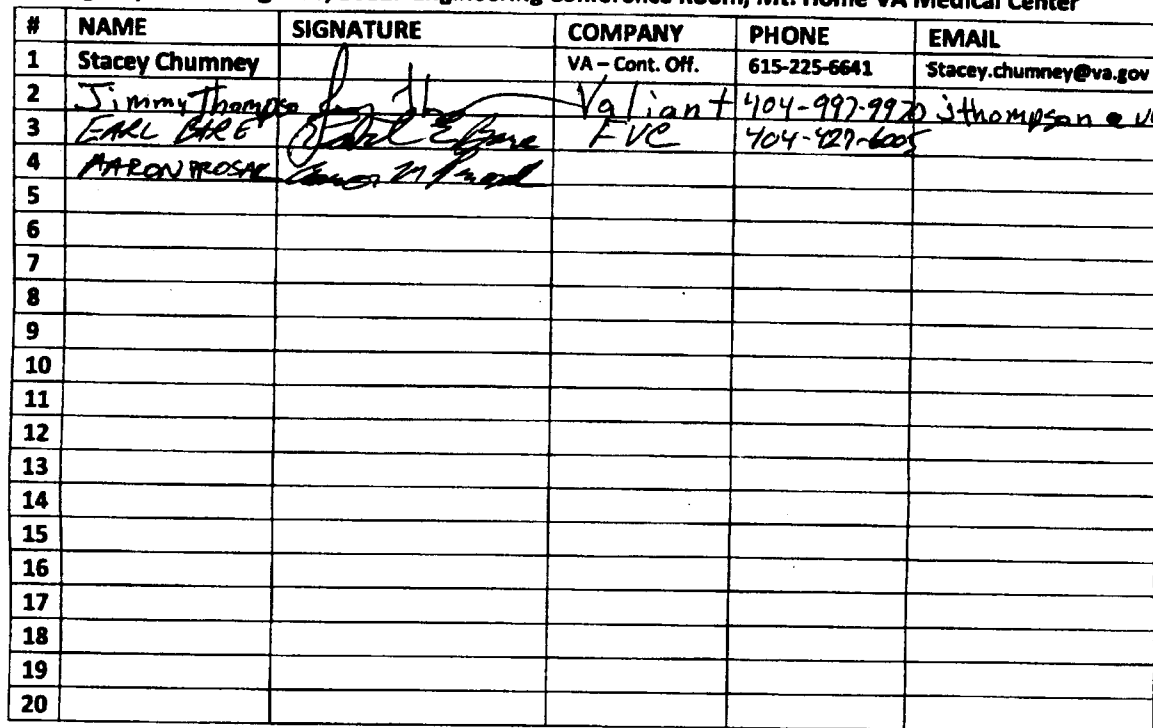 Engineering Conference Room, Mt. Home VA Medical Center
# NAME SIGNATURE COMPANY PHONE EMAIL
1 Stacey Chumney VA – Cont. Off. 615-225-6641 Stacey.chumney@va.gov
2 Jimmy Thompso Valiant 404-997-9970 jthompson@v
3 EARL BARE Earl E Bare FVC 404-427-6005
4 AARON
5
6
7
8
9
10
11
12
13
14
15
16
17
18
19
20